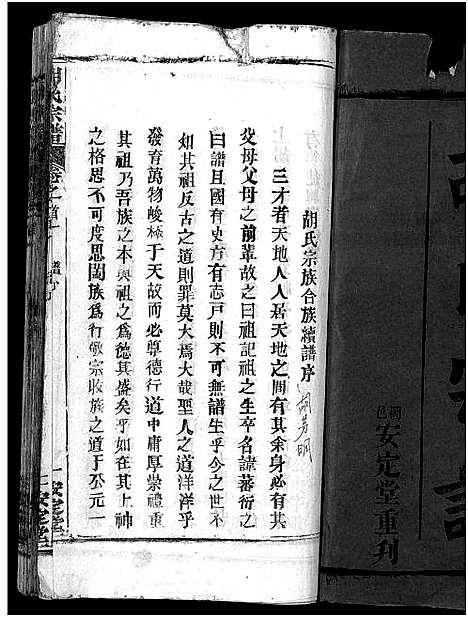 胡氏宗族合族續譜序
三才者天地人人居天地之間有其余身必有其
父母父母之前輩故之曰祖記祖之生卒名諱蕃衍之
曰譜且國有史方有志戸則不可無譜生乎今之世不
知其祖反古之道則罪莫大焉大哉聖人之道洋洋乎
發育萬物峻極于天故而必尊德行道中庸厚崇禮重
其祖乃吾族之本與祖之爲德其盛矣乎如在其上神
之格思不可度思閤族爲行敬宗收族之道于丕元一
胡氏宗譜
卷之首
譜序
安定堂
安定堂重刋